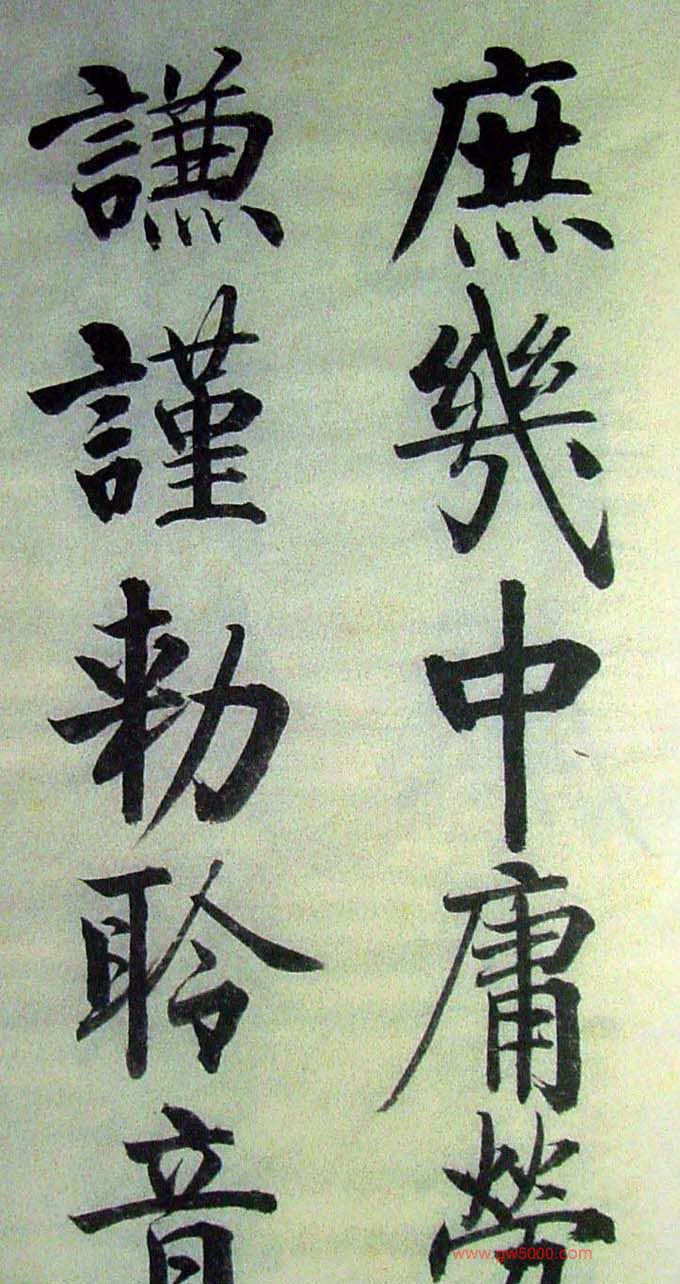 庶幾中庸勞
謙謹勅聆音
www.gw5000.com